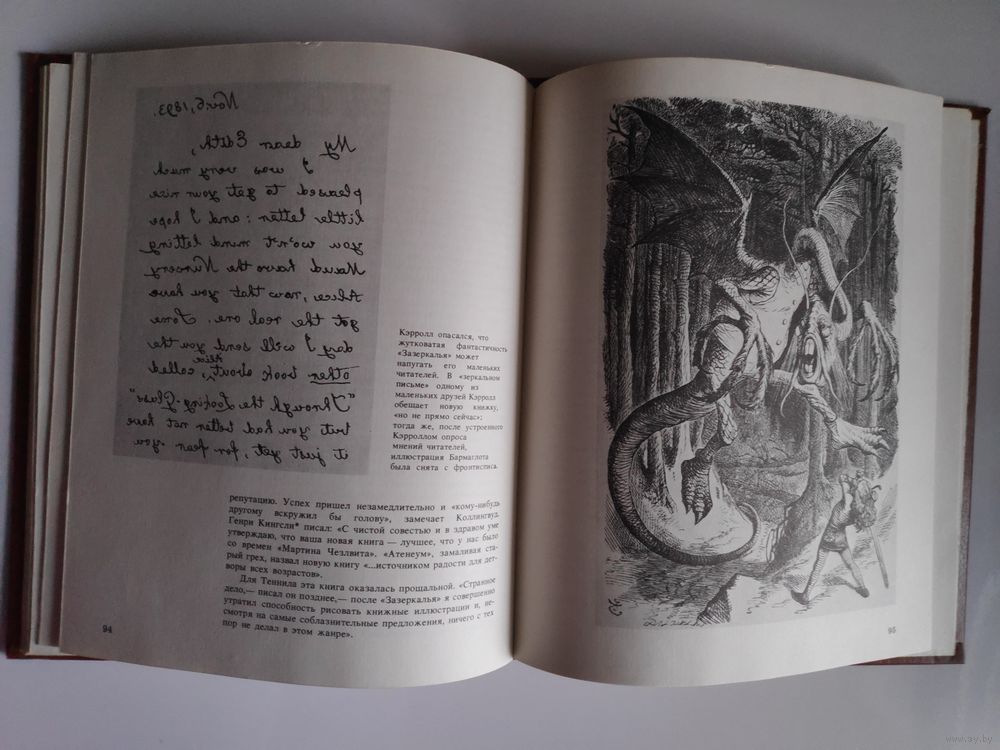 Nov. 6, 1893.
My dear Edith,
I was very much
pleased to get your nice
little letter: and I hope
you won't mind letting
Maud have the Nursery
Alice, now that you have
got the real one. Some
day I will send you the
other book about Alice, called
"Through the Looking-Glass"
but you had better not have
it just yet, for fear you
Кэрролл опасался, что
жутковатая фантастичность
"Зазеркалья" может
напугать его маленьких
читателей. В «зеркальном
письме» одному из
маленьких друзей Кэрролл
обещает новую книжку,
«но не прямо сейчас»;
тогда же, после устроенного
Кэрроллом опроса
мнений читателей,
иллюстрация Бармаглота
была снята с фронтисписа.
репутацию. Успех пришел незамедлительно и «кому-нибудь
другому вскружил бы голову», замечает Коллингвуд.
Генри Кингсли* писал: «С чистой совестью и в здравом уме
утверждаю, что ваша новая книга — лучшее, что у нас было
со времен «Мартина Чезлвита». «Атенеум», замаливая ста-
рый грех, назвал новую книгу «...источником радости для дет-
воры всех возрастов».
Для Теннила эта книга оказалась прощальной. «Странное
дело,— писал он позднее,— после «Зазеркалья» я совершенно
утратил способность рисовать книжные иллюстрации и, не-
смотря на самые соблазнительные предложения, ничего с тех
пор не делал в этом жанре».
94
95
www.ay.by